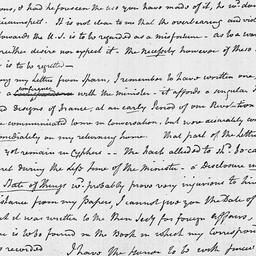 ons, & had he foreseen the use you have made of it, he wd. do
circumspect. It is not clear to me that the overbearing and vio
towards the U.S. is to be regarded as a misfortune - as to a wa
neither desire nor expect it. The necessity however of these
is to be regretted
ing my letter from Spain, I remember to have written one
a conference with the minister - it affords a singular
and designs of France, at an early period of our Revolution
be communicated to me in conversation, but now accurately con
immediately on my returning home. That part of the letter
yet remain in Cypher -- The fact alluded to shd. be ca
ret during the life time of the Minister - a Disclosure in
State of things wd. probably prove very injurious to him
distance from my papers, I cannot give you the Date of
but it was written to the then Secy. for foreign Affairs,
is to be found in the Book in which my Correspon
recorded I have the honor to be with